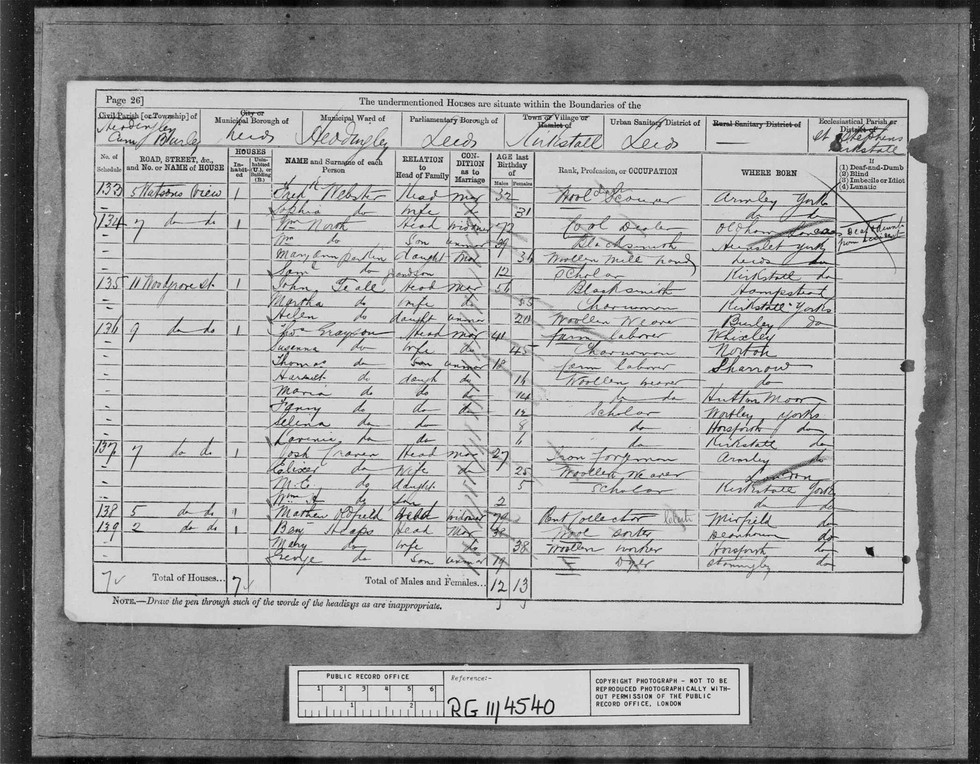 Page 26]
The undermentioned Houses are situate within the Boundaries of the
Civil Parish [or Township] of
City or Municipal Borough of
Municipal Ward of
Parliamentary Borough of
Town or Village or Hamlet of
Urban Sanitary District of
Rural Sanitary District of
Ecclesiastical Parish or District of
Headingley Burley
Leeds
Headingley
Leeds
Kirkstall
Leeds
St Stephens Kirkstall
No. of Schedule
ROAD, STREET, &c., and No. or NAME of HOUSE
HOUSES
Inhabited
Uninhabited (U.), or Building (B.)
NAME and Surname of each Person
RELATION to Head of Family
CONDITION as to Marriage
AGE last Birthday of
Males
Females
Rank, Profession, or OCCUPATION
WHERE BORN
If
(1) Deaf-and-Dumb
(2) Blind
(3) Imbecile or Idiot
(4) Lunatic
133 5 Watsons View 1 Webster Head mar 32 Wool Scourer Armley York
Sophia do wife do 31 do do
134 7 do do 1 Wm North Head widower 72 Coal Dealer Oldham
Wm do Son unmar 39 Blacksmith Hunslet York
Mary Ann daught mar 36 Woollen Mill hand Leeds do
Saml do grandson 12 Scholar Kirkstall do
135 11 Woodgrove St 1 John Teall Head mar 56 Blacksmith Hampstead
Martha do wife do 55 Charwoman Kirkstall Yorks
Helen do daught unmar 20 Woollen Weaver Burley do
136 9 do do 1 Grayson Head mar 41 farm laborer Whixley
Susanna do wife do 45 Charwoman Norton
Thomas do Son unmar 18 farm laborer Sharrow
Harriet do daugh do 16 Woollen weaver do
Maria do do do 14 do do Hutton Moor
Fanny do do do 12 Scholar Wortley Yorks
Selina do do 8 do Horsforth do
Lavinia do do 6 do Kirkstall do
137 7 do do 1 Josh Craven Head mar 27 Iron Forgeman Armley do
do Wife do 25 Woollen Weaver London
M. E. do daught 5 Scholar Kirkstall York
Wm A do Son 2 do do
138 5 do do 1 Mathew Oldfield Head widower 74 Rent Collector Mirfield do
139 2 do do 1 Benj Heaps Head Mar Wool Sorter do
Mary do wife do 38 Woollen worker Horsforth do
George do Son unmar 19 Dyer Stanningley do
7 Total of Houses... 7 Total of Males and Females... 12 13
NOTE.—Draw the pen through such of the words of the headings as are inappropriate.
PUBLIC RECORD OFFICE
1 2 3 4 5 6
1 2
Reference:-
RG 11/4540
COPYRIGHT PHOTOGRAPH - NOT TO BE
REPRODUCED PHOTOGRAPHICALLY WITH-
OUT PERMISSION OF THE PUBLIC
RECORD OFFICE, LONDON